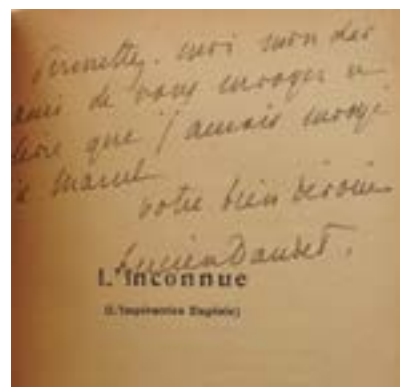 Permettez-moi mon cher
ami de vous envoyer un
livre que j'aurais envoyé
à Marcel
votre bien dévoué
Lucien Daudet.
L'Inconnue
(L'Impératrice Eugénie)